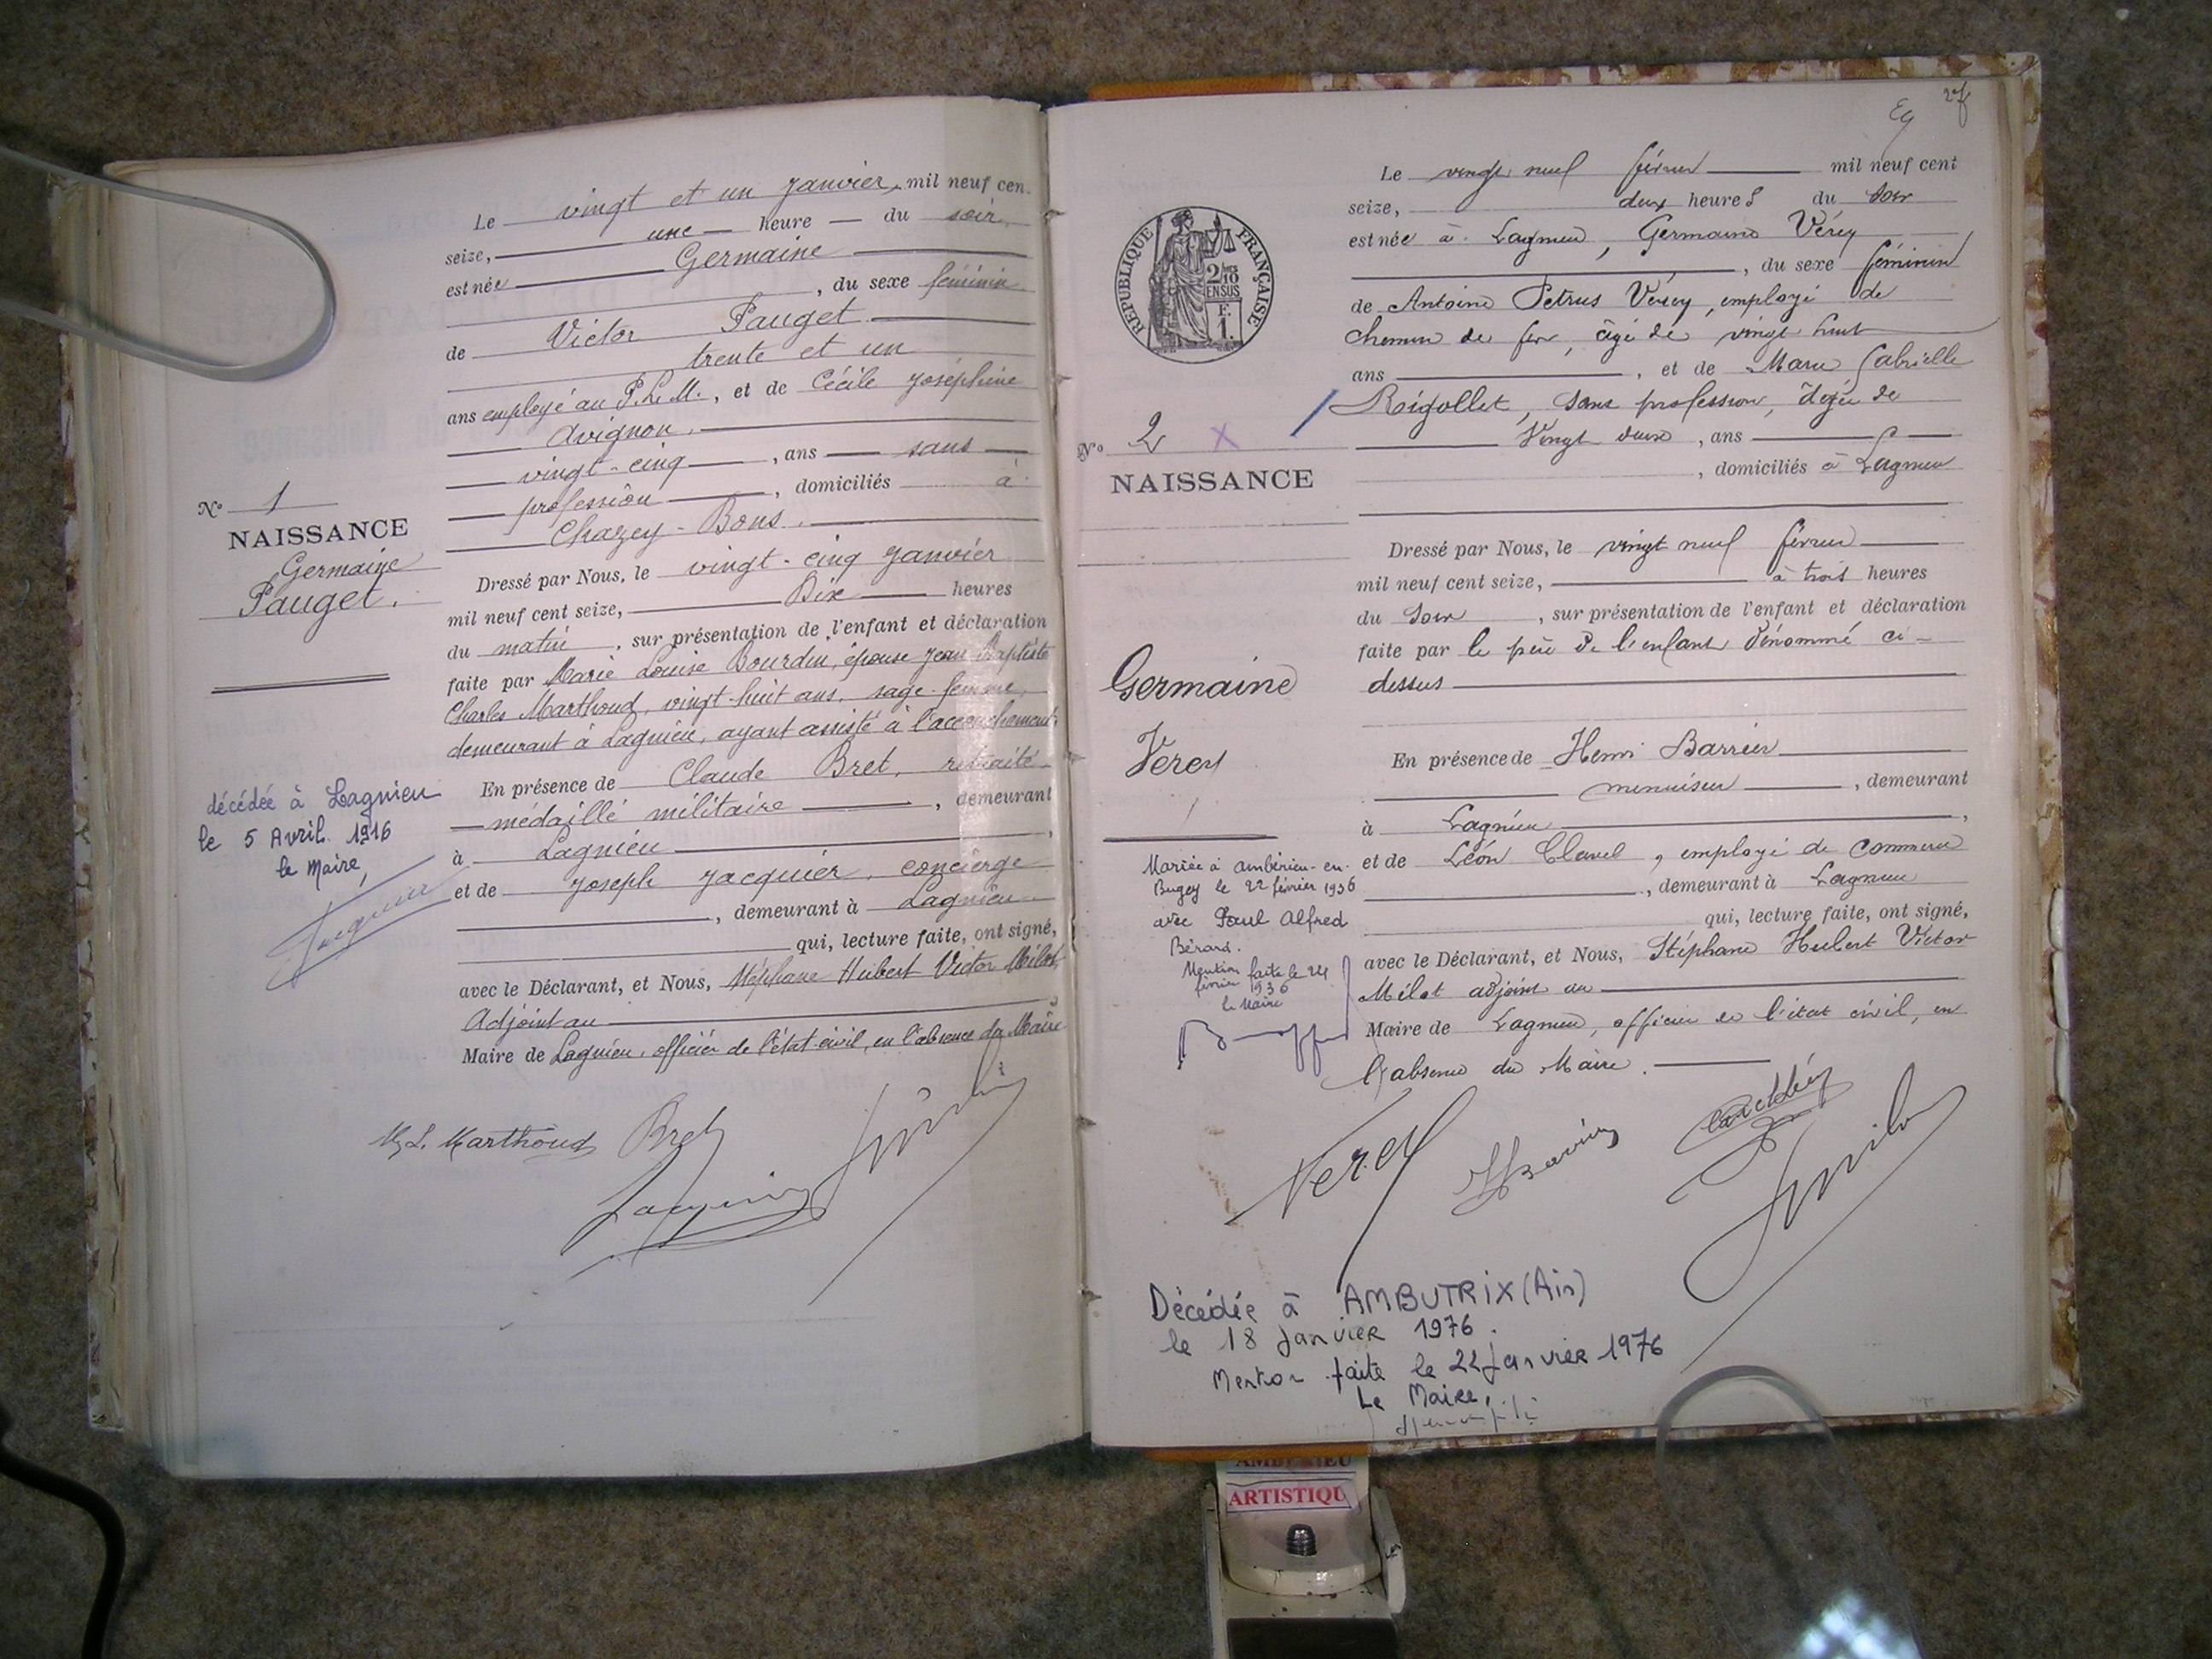 Le vingt et un janvier, mil neuf cen
seize, une heure du soir,
est née Germaine
, du sexe féminin
de Victor Pauget
trente et un
ans employé au P.L.M., et de Cécile Joséphine
Avignon.
vingt-cinq, ans sans
profession, domiciliés à
Chazey-Bons.
Nº 1
NAISSANCE
Germaine
Pauget.
Dressé par Nous, le vingt-cinq janvier
mil neuf cent seize, Dix heures
du matin, sur présentation de l'enfant et déclaration
faite par Marie Louise Bourdin, épouse Jean Baptiste
Charles Marthoud, vingt-huit ans, sage-femme,
demeurant à Lagnieu, ayant assisté à l'accouchement
En présence de Claude Bret, retraité
médaillé militaire, demeurant
à Lagnieu,
et de Joseph Jacquier, concierge
, demeurant à Lagnieu
qui, lecture faite, ont signé,
avec le Déclarant, et Nous, Stéphane Hubert Victor Milot,
Adjoint au
Maire de Lagnieu, officier de l'état-civil, en l'absence du Maire
décédée à Lagnieu
le 5 Avril 1916
le Maire,
Jacquier
M. L. Marthoud Bret
Jacquier
27
Le vingt neuf février mil neuf cent
seize, deux heures du soir
est née à Lagnieu, Germaine Vérey
, du sexe féminin
de Antoine Petrus Vérey, employé de
chemin de fer, âgé de vingt huit
ans, et de Marie Gabrielle
Rigollet, sans profession, âgée de
Vingt deux, ans
, domiciliés à Lagnieu
REPUBLIQUE FRANÇAISE
2/10
EN SUS
E.
1.
Nº 2 X
NAISSANCE
Germaine
Verey
Dressé par Nous, le vingt neuf février
mil neuf cent seize, à trois heures
du soir, sur présentation de l'enfant et déclaration
faite par le père de l'enfant dénommé ci-
dessus
En présence de Henri Barrier
menuisier, demeurant
à Lagnieu,
et de Léon Clavel, employé de commerce
, demeurant à Lagnieu
qui, lecture faite, ont signé,
avec le Déclarant, et Nous, Stéphane Hubert Victor
Milot adjoint au
Maire de Lagnieu, officier de l'état civil, en
l'absence du Maire.
Mariée à Ambérieu-en-
Bugey le 22 février 1936
avec Paul Alfred
Bérard.
Mention faite le 24
février 1936
le Maire
Verey
Décédée à AMBUTRIX (Ain)
le 18 Janvier 1976.
Mention faite le 22 Janvier 1976
Le Maire,
AMBERIEU
ARTISTIQU